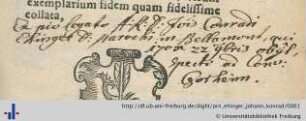 exemplarium fidem quam fidelissime
collata,
Ex pio legato A. R. D. Jois Conradi
Ehinger p. parochi in Bettmaint, qui
ipsm 22 9bris obijt,
spectat ad Conv.
http://dl.ub.uni-freiburg.de/diglit/prv_ehinger_johann_konrad/0001
© Universitätsbibliothek Freiburg